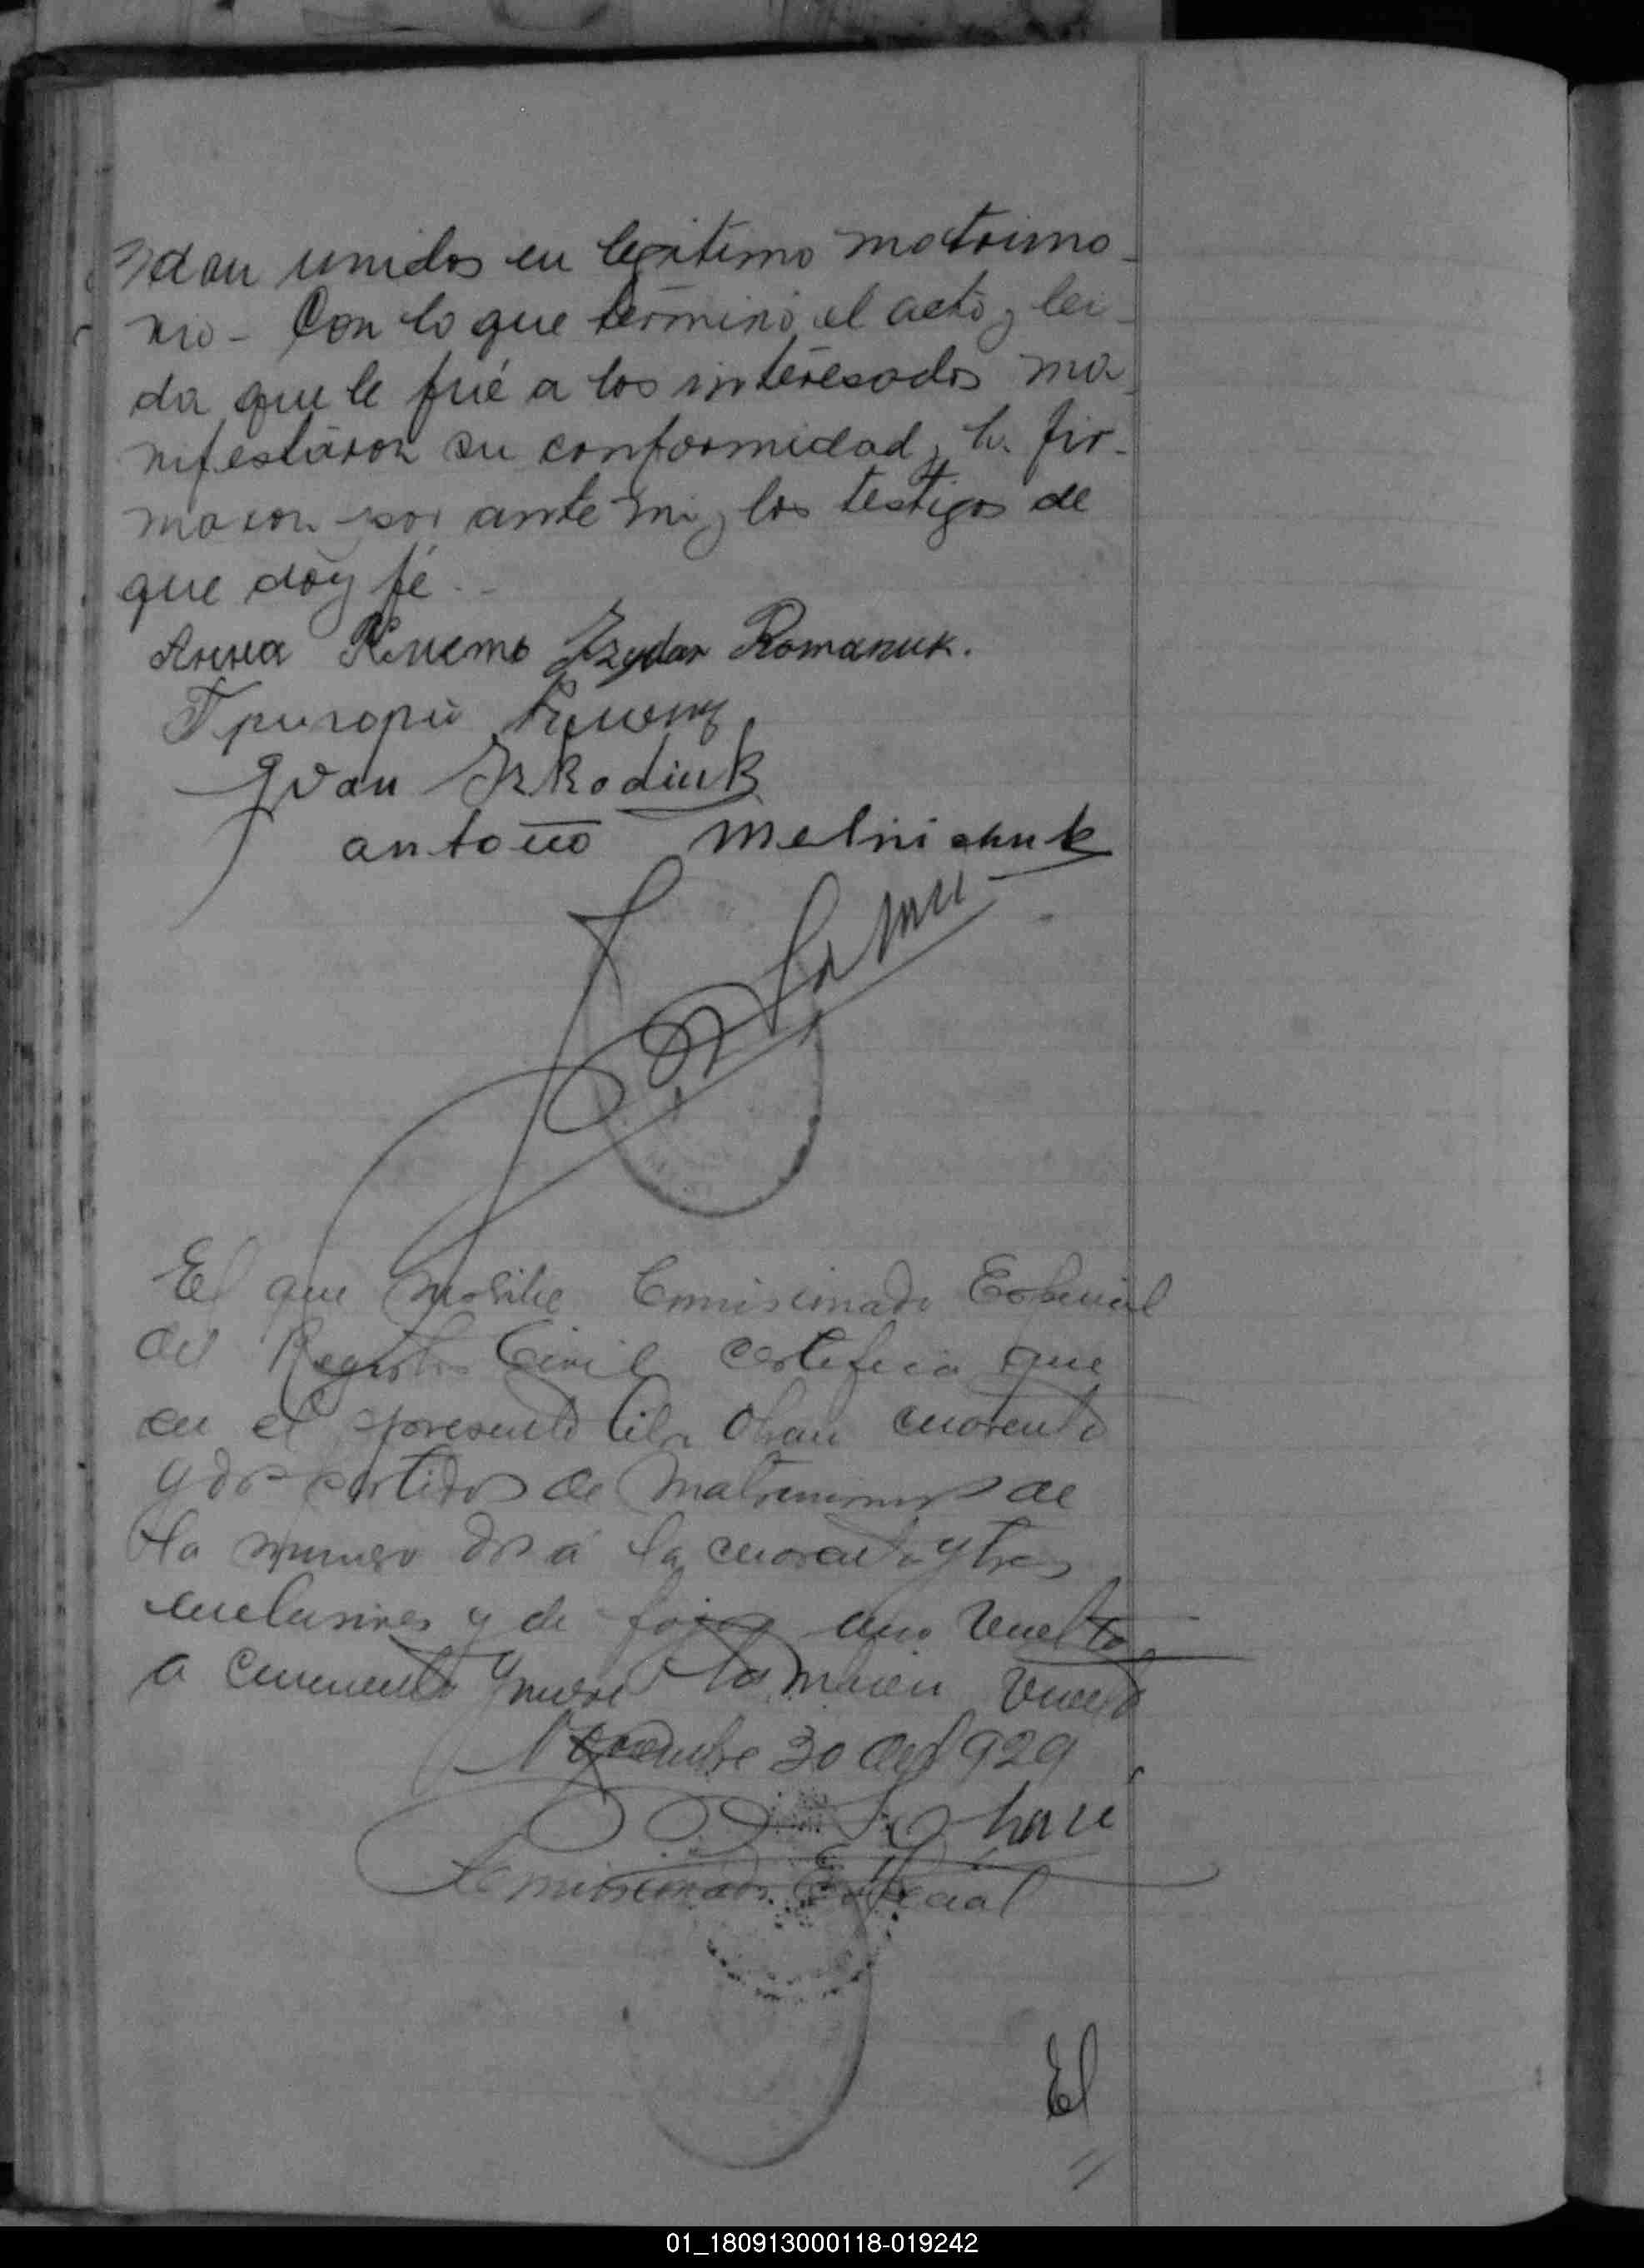 dan unidos en legitimo matrimo-
nio - Con lo que terminó el acto y lei-
da que le fué a los interesados ma
nifestaron su conformidad y la fir-
maron por ante mi y los testigos de
que doy fé.-
Анна Romanuk.
Григорій
Ivan
antonio Melnichuk
El que suscribe Comisionado Especial
del Registro Civil certifica que
en el presente libro obran cuarenta
y dos partidas de matrimonios de
la numero dos a la cuarenta y tres
inclusives y de fojas uno vuelta
a cincuenta y nueve tambien vuelta
Noviembre 30 de 1929
Comisionado Especial
El
01_180913000118-019242